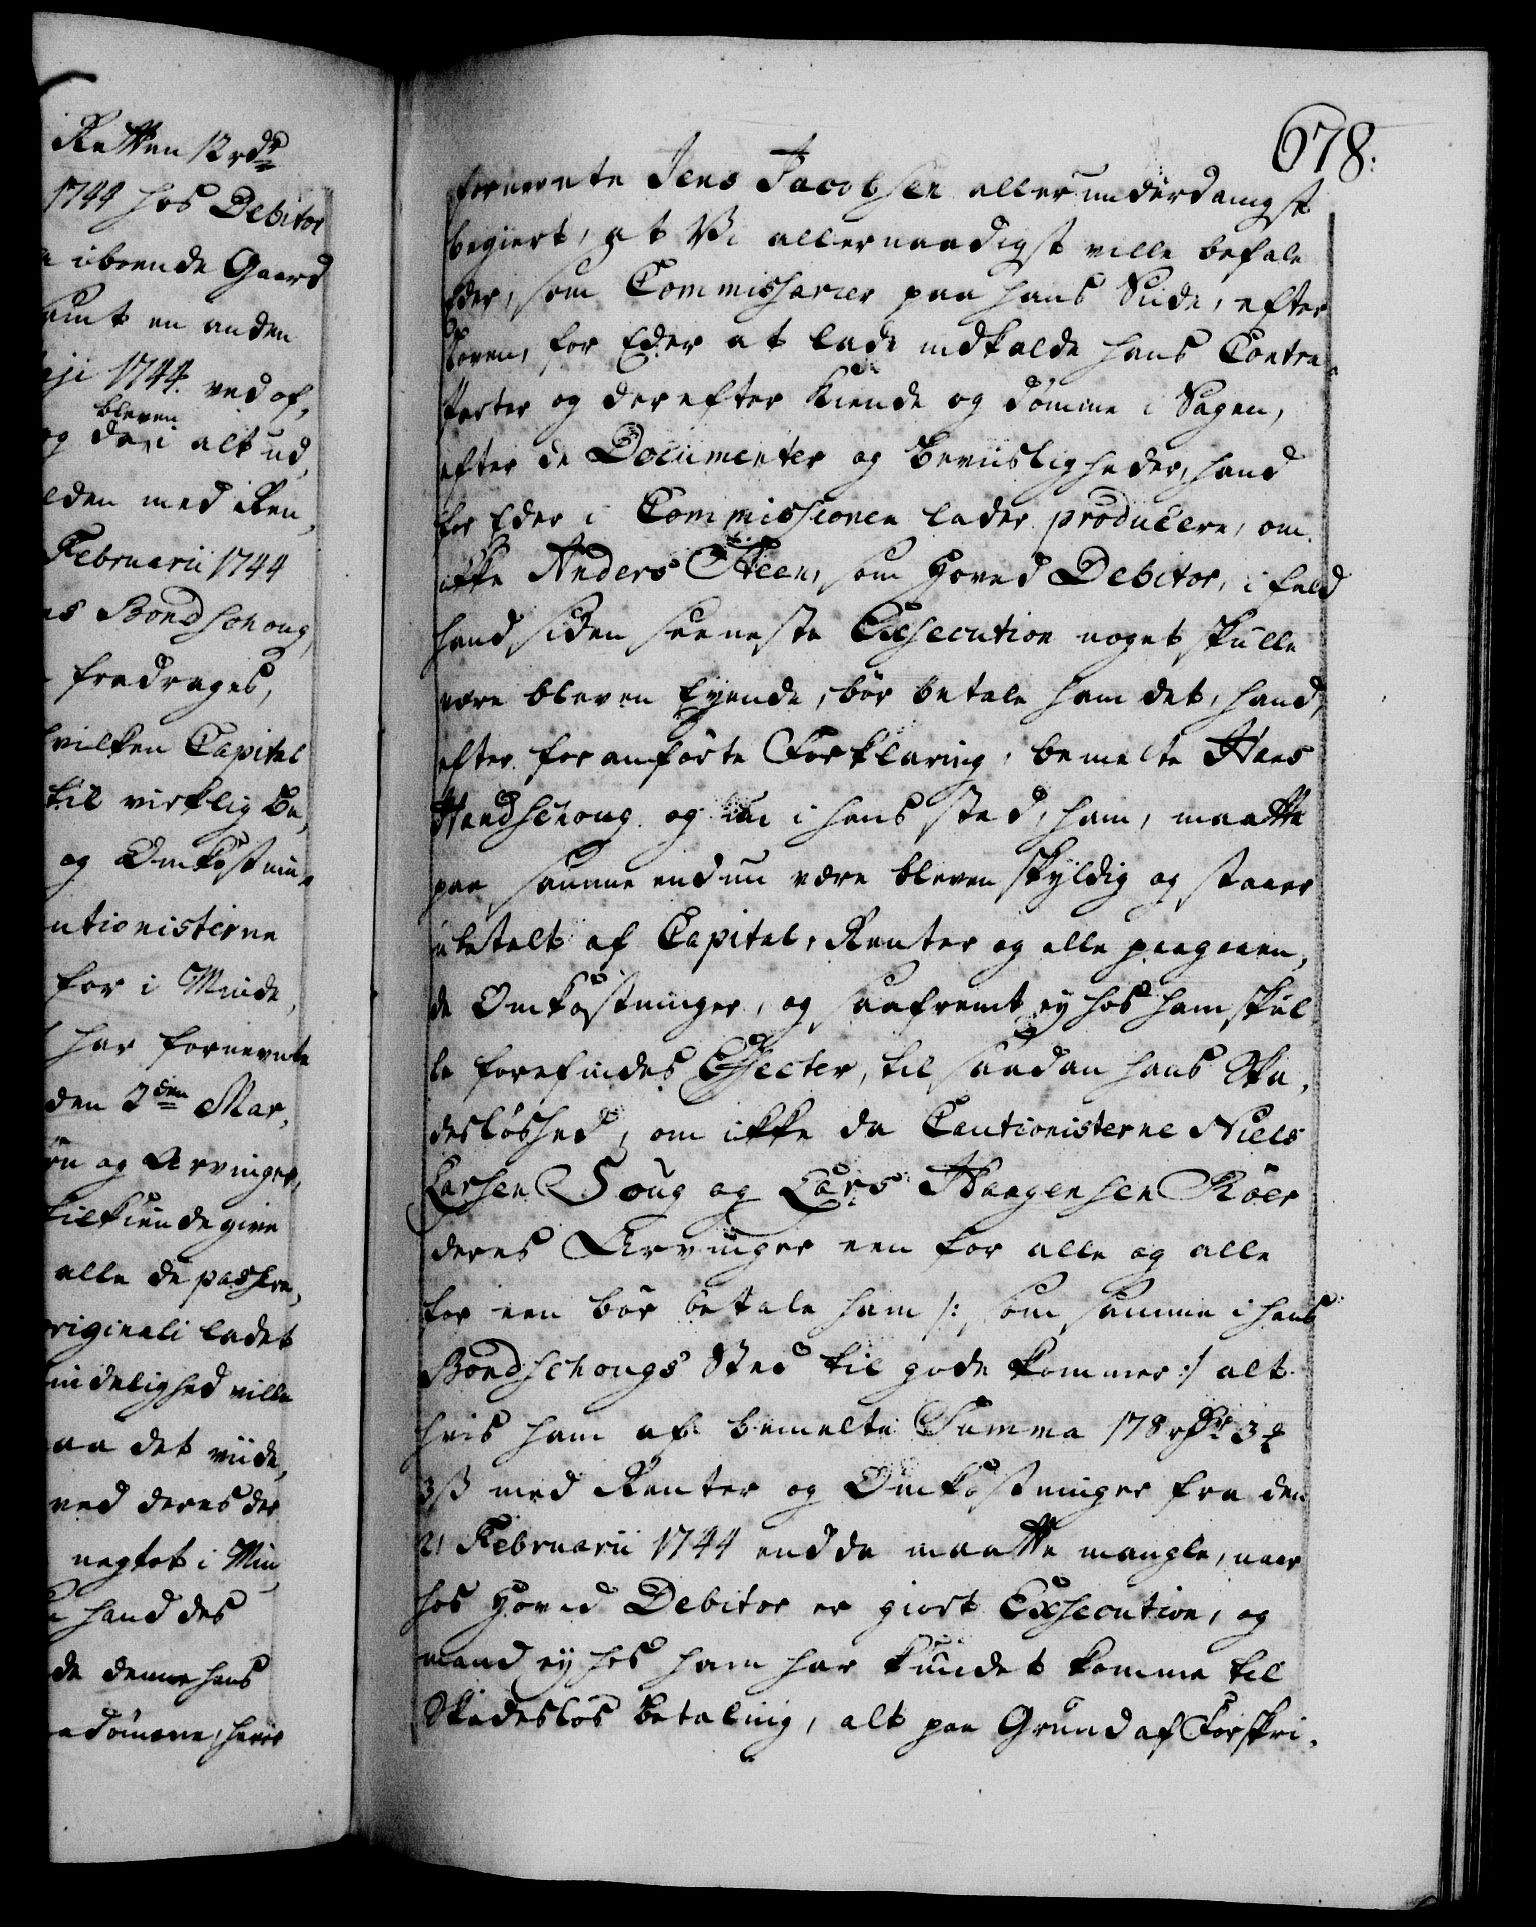 Retten 12 rdr
1744 hos Debitor
iboende Gaard
samt en anden
1744. ved of,
bleven
og da i alt ud,
med Ren,
Februarii 1744
Bondschoug,
fradrages,
hvilken Capital
til virklig Be,
og Omkostnin,
utionisterne
for i Minde,
har fornevnte
den 2den Mar,
og Arvinger,
tilkiende give
alle de passere,
riginali ladet
indelighed ville
det viide,
ved deres der
negtet i Min,
hand des
denne hans
domme, hvis
678.
fornevnte Jens Jacobsen allerunderdanigst
begiert, at Vi allernaadigst ville befale
Eder, som Commissarier paa hans Side, efter
Loven, for Eder at lade indkalde hans Contra-
Parter og derefter kiende og dømme i Sagen,
efter de Documenter og Beviisligheder, hand
for Eder i Commissionen lader producere, om
ikke Anders Steen, som Hoved Debitor, i fald
hand siden seeneste Execution noget skulle
være bleven Eyende, bør betale ham det, hand,
efter foranførte Forklaring, bemelte Hans
Bondschoug og nu i hans sted, ham, maatte
paa samme endnu være bleven skyldig og staaer
ubetalt af Capital, Renter og alle paagaaen,
de Omkostninger, og saafremt ey hos ham skul
le forefindes Effecter, til saadan hans Ska,
desløshed, om ikke da Cautionisterne Niels
Larsen Soug og Lars Haagensen Röer
deres Arvinger een for alle og alle
for een bør betale ham /: som samme i hans
Bondschougs Sted til gode kommer :/ alt
hvis ham af bemelte Summa 178 rdr 3 ℔
3 ß med Renter og Omkostninger fra den
21 Februarii 1744 endda maatte mangle, naar
hos Hoved Debitor er giort Execution, og
mand ey hos ham har kundet komme til
Skadesløs betaling, alt paa Grund af Forskri,